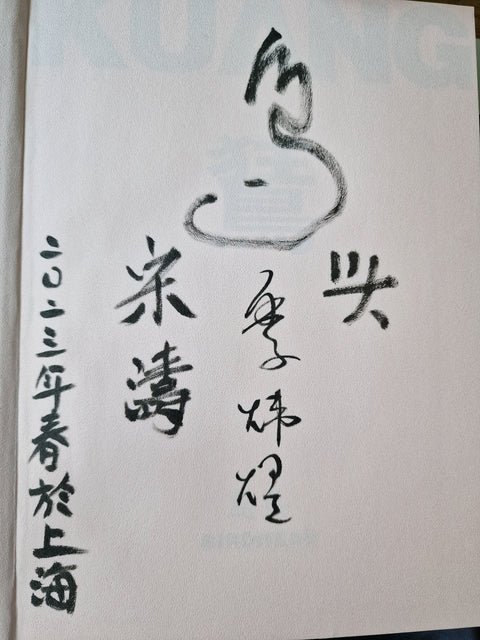 KUANG
鸟
头
季炜煜
宋濤
二〇二三年春於上海